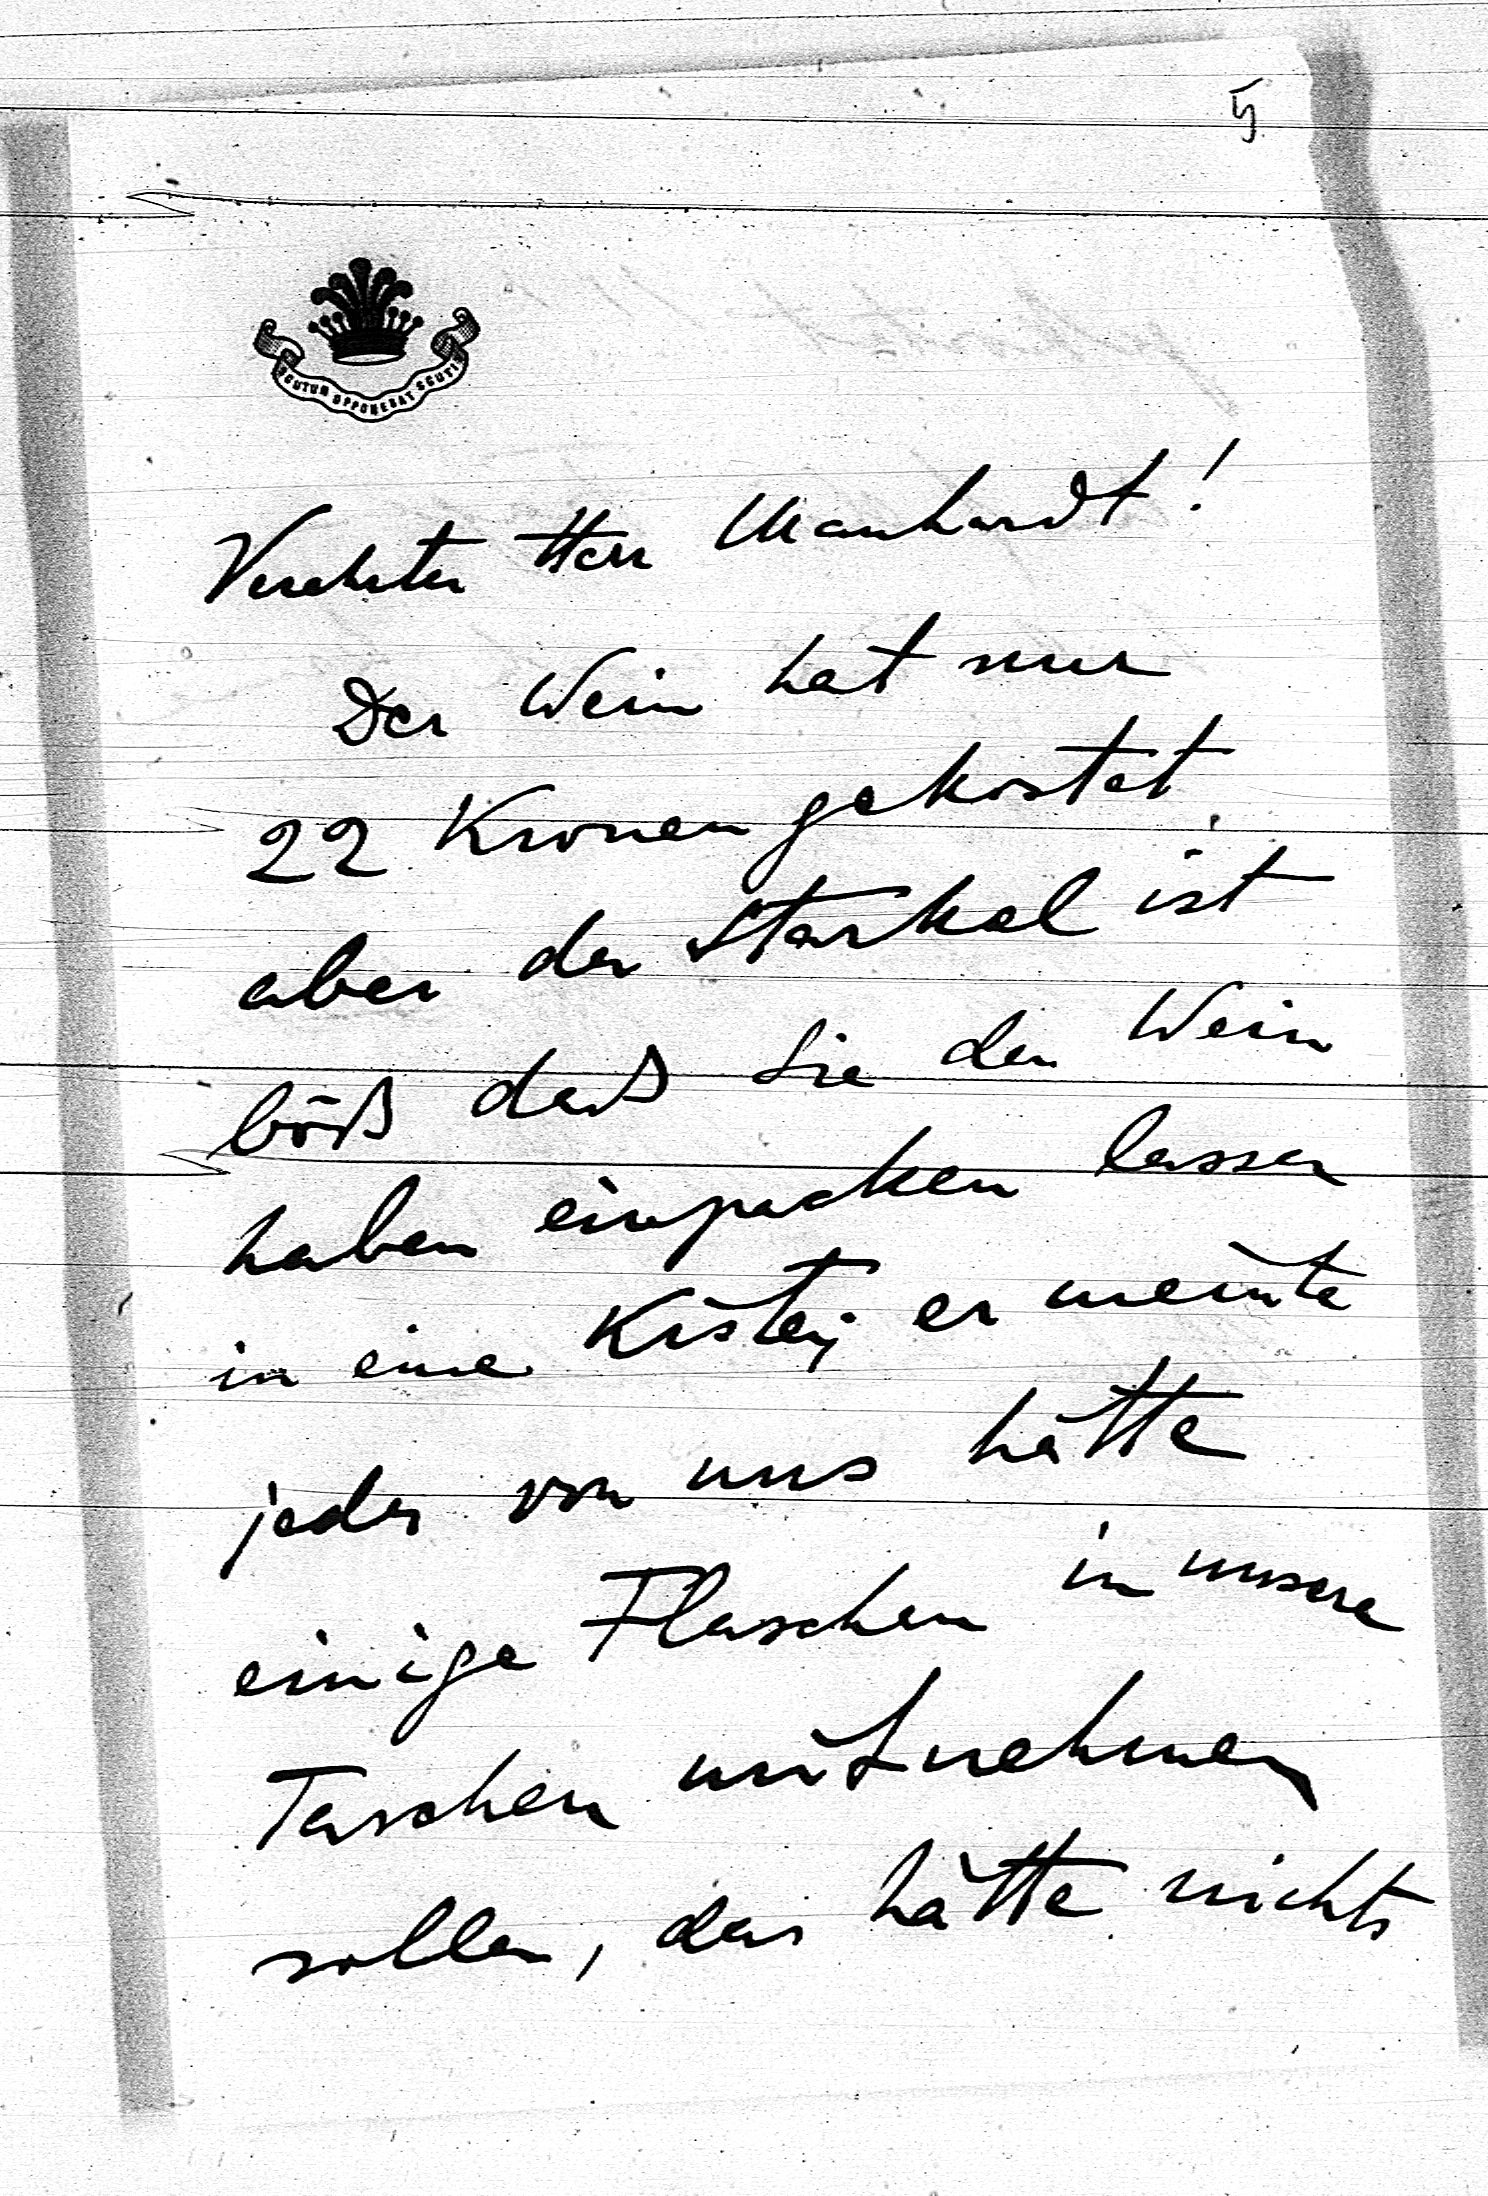 5
SCUTUM OPPONEBAT SCUTIS
Verehrter Herr Manhardt!
Der Wein hat nur
22 Kronen gekostet,
aber der Starkel ist
böß daß Sie den Wein
haben einpacken lassen
in eine Kiste; er meinte
jeder von uns hätte
einige Flaschen in unsere
Taschen mitnehmen
sollen, das hätte nichts